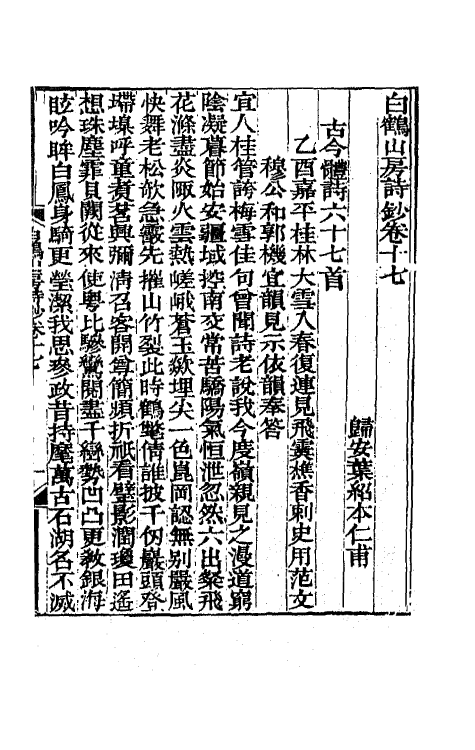 白鶴山房詩鈔卷十七
歸安葉紹本仁甫
古今體詩六十七首
乙酉嘉平桂林大雪入春復連見飛霙樵香刺史用范文
穆公和郭機宜韻見示依韻奉答
宜人桂管誇梅雪佳句曾聞詩老說我今度嶺親見之漫道窮
陰凝暮節始安疆域控南交常苦驕陽氣恒泄忽然六出粲飛
花滌盡炎陬火雲熱嵯峨蒼玉歘埋尖一色崑岡認無別嚴風
快舞老松欹急霰先摧山竹裂此時鶴氅倩誰披千仞巖頭登
墆堄呼童煑茗興彌淸召客開尊簡頻折祇看璧影濶瓊田遙
想珠塵霏貝闕從來使粤比驂鸞閱盡千巒勢凹凸更教銀海
眩吟眸白鳳身騎更瑩潔我思參政昔持麾萬古石湖名不滅
白鶴山房詩鈔卷十七